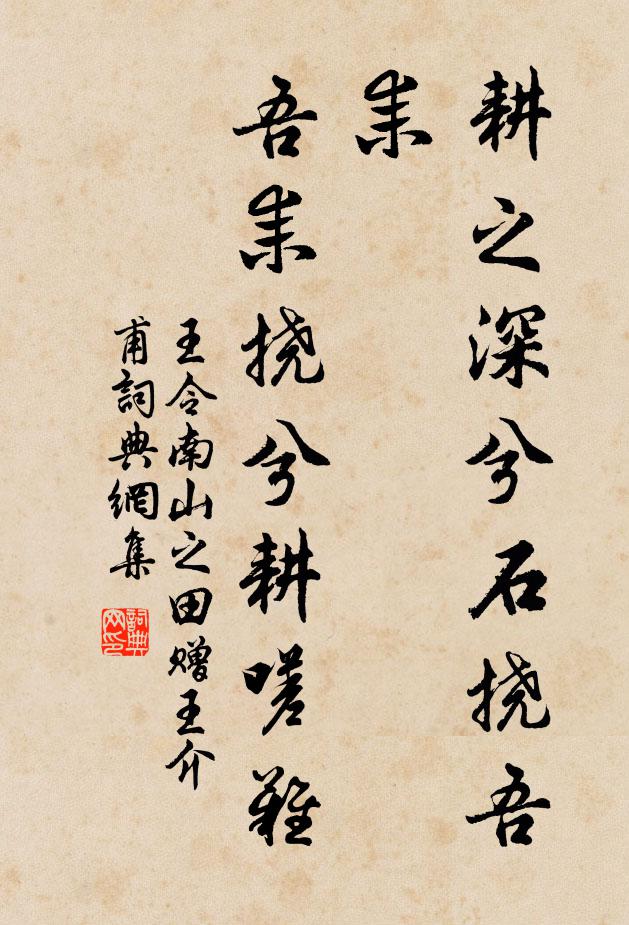 耕之深兮石挠吾
耒
吾耒挠兮耕嗟難
王令南山之田赠王介
甫詞典網集
詞典
网印